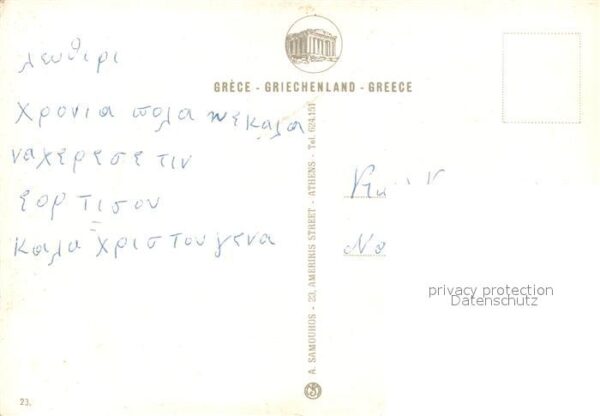 λευθιρι
χρονια πολα με καλα
να χερεσε τιν
εορ τι σου
καλα χριστουγενα
GRÈCE - GRIECHENLAND - GREECE
A. SAMOUHOS - 23, AMERIKIS STREET - ATHENS - Tel. 624.151
privacy protection
Datenschutz
23.